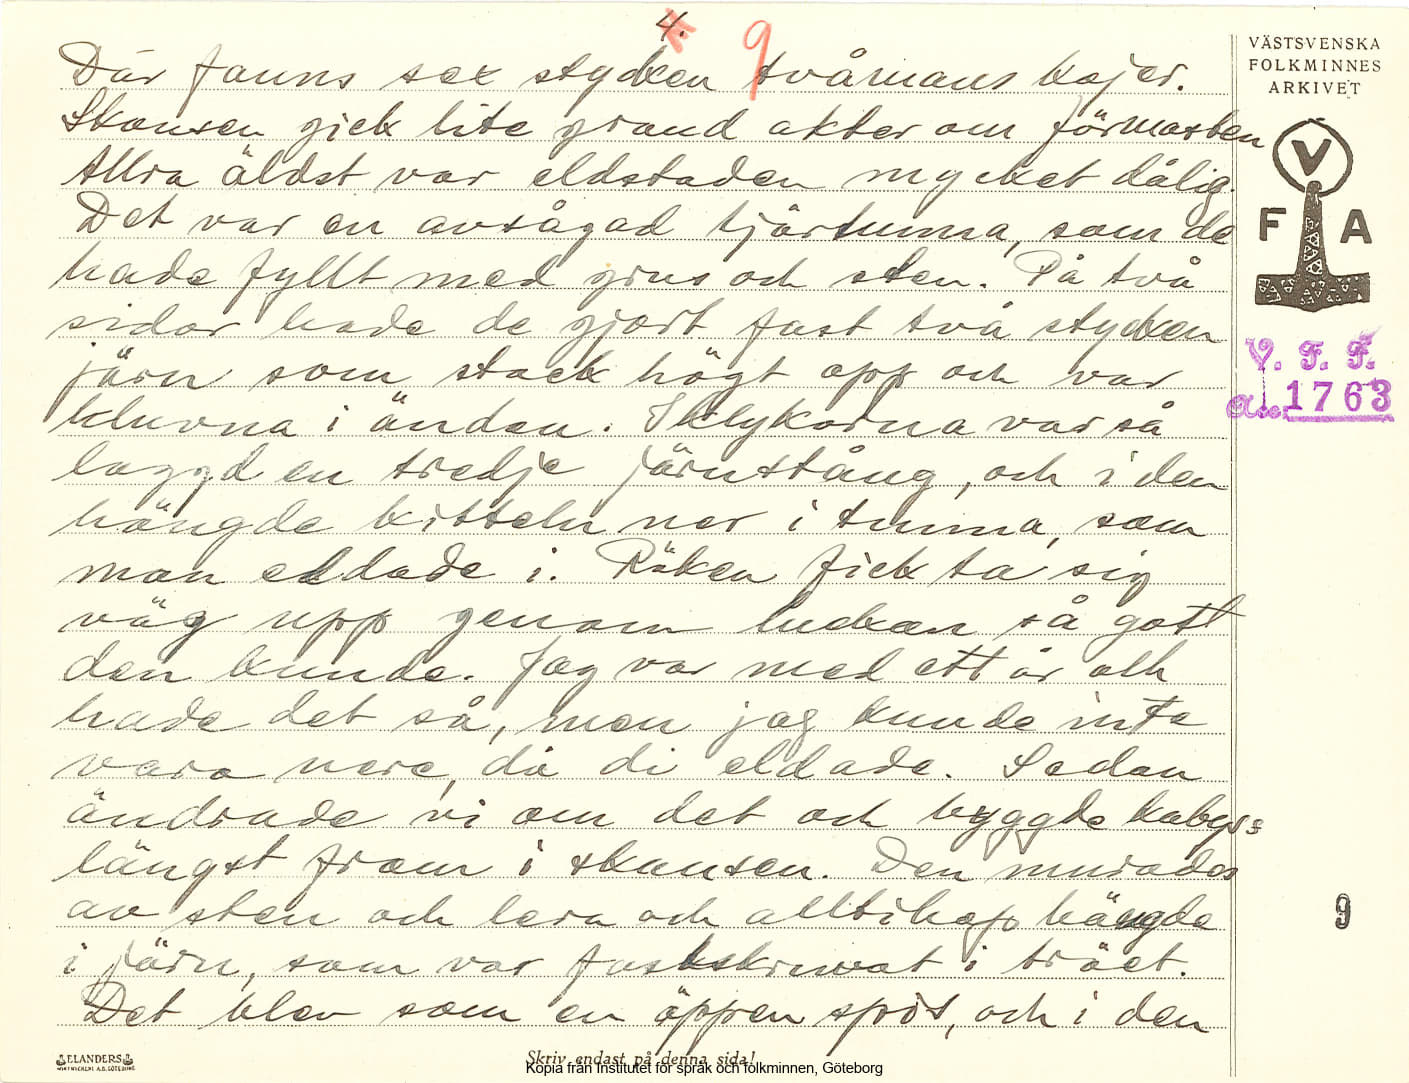 4.
9
Där fanns sex stycken tvåmans kojer.
Skansen gick lite grand akter om förmasten
Allra äldst var eldstaden mycket dålig.
Det var en avsågad tjärtunna, som de
hade fyllt med grus och sten. På två
sidor hade de gjort fast två stycken
järn som stack högt opp och var
kluvna i ändan. I klykorna var så
laggd en tredje järnstång, och i den
hängde kitteln ner i tunna, som
man eldade i. Röken fick ta sig
väg upp genom luckan så gott
den kunde. Jag var med ett år och
hade det så, men jag kunde inte
vara nere, då di eldade. Sedan
ändrade vi om det och byggde kabys:
längst fram i skansen. Den murades
av sten och lera och alltihop hängde
i järn, som var fastskruvat i träet.
Det blev som en öppen spis, och i den
VÄSTSVENSKA
FOLKMINNES
ARKIVET
V
F A
V. F. F.
Acc. 1763
9
ELANDERS
Skriv endast på denna sida!
Kopia från Institutet för språk och folkminnen, Göteborg